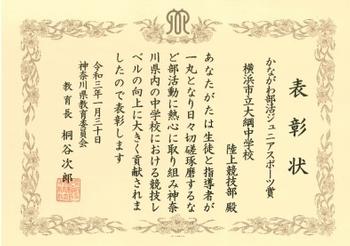 表彰状
かながわ部活ジュニアスポーツ賞
横浜市立大綱中学校
陸上競技部 殿
あなたがたは生徒と指導者が
一丸となり日々切磋琢磨するな
ど部活動に熱心に取り組み神奈
川県内の中学校における競技レ
ベルの向上に大きく貢献されま
したので表彰します
令和三年一月三十日
神奈川県教育委員会
教育長 桐谷次郎